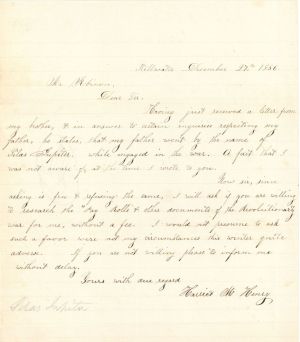 December 27th 18
Mr.
Dear Sir.
Having just received a letter from
my brother, & in answer to certain inquiries respecting my
father, he states, that my father went by the name of
Silas while engaged in the war. A fact that I
was not aware of at the time I wrote to you.
Now sir, since
asking is free & refusing the same, I will ask if you are willing
to research the Pay Rolls & other documents of the Revolutionary
war for me, without a fee. I would not presume to ask
such a favor were not my circumstances this winter quite
adverse. If you are not willing please to inform me
without delay.
Yours with due regard
Harriet M. Henry
Silas